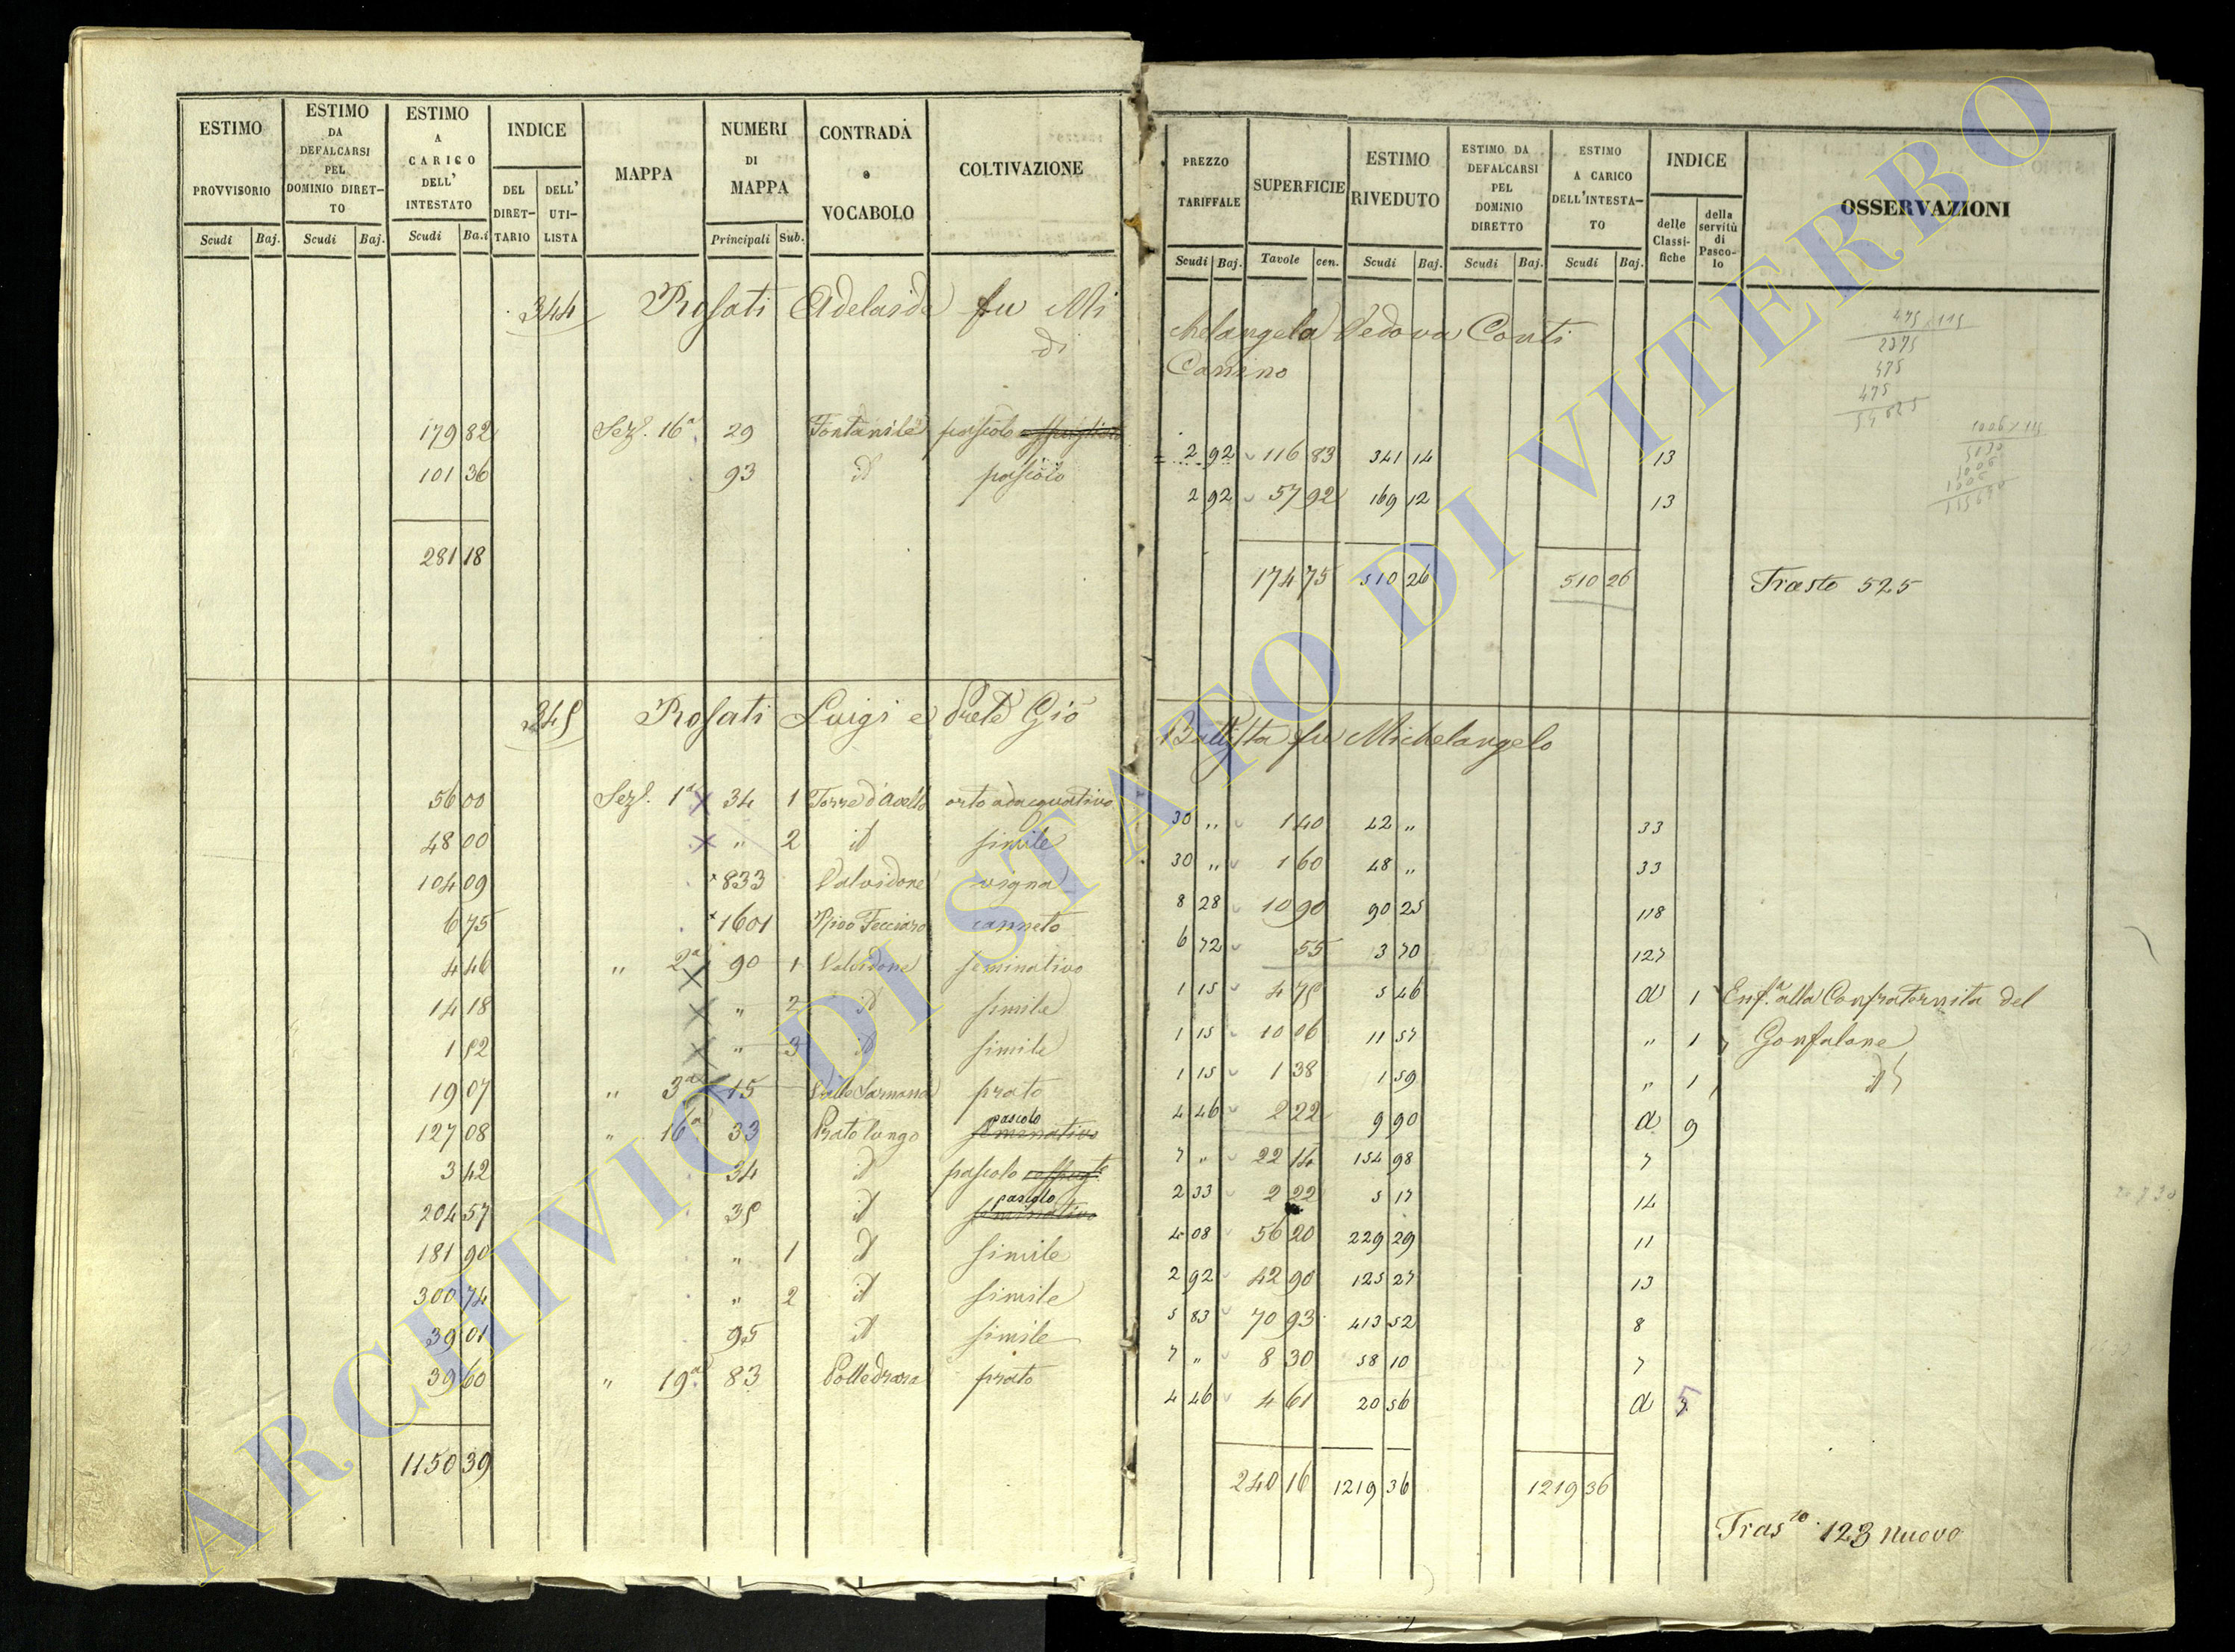 ESTIMO PROVVISORIO Scudi Baj.
ESTIMO DA DEFALCARSI PEL DOMINIO DIRET- TO Scudi Baj.
ESTIMO A CARICO DELL' INTESTATO Scudi Ba.i
INDICE DEL DIRET- TARIO DELL' UTI- LISTA
MAPPA
NUMERI DI MAPPA Principali Sub.
CONTRADA o VOCABOLO
COLTIVAZIONE
344 Rosati Adelaide fu Mi
di
179 82 Sez. 16a 29 Fontanile pascolo
101 36 93 id pascolo
281 18
345 Rosati Luigi e Prete Gio
56 00 Sez. 1a 34 1 Torre d'Avello orto adacquativo
48 00 " 2 id simile
104 09 833 Valvidone vigna
6 75 1601 Rivo Fecciaro canneto
4 46 " 2a 90 1 Valvidone seminativo
14 18 " 2 id simile
1 92 " 3 id simile
19 07 " 3a 15 Valle prato
127 08 " 16a 33 Prato lungo pascolo seminativo
3 42 34 id pascolo
204 57 35 id pascolo seminativo
181 90 " 1 id simile
300 74 " 2 id simile
39 01 95 id simile
39 60 " 19a 83 Polledrara prato
1150 39
PREZZO TARIFFALE Scudi Baj.
SUPERFICIE Tavole cen.
ESTIMO RIVEDUTO Scudi Baj.
ESTIMO DA DEFALCARSI PEL DOMINIO DIRETTO Scudi Baj.
ESTIMO A CARICO DELL'INTESTA- TO Scudi Baj.
INDICE delle Classi- fiche della servitù di Pasco- lo
OSSERVAZIONI
chelangelo Vedova Conti
Canino
475 x 115
2375
475
475
54625
1006 x 115
2 92 116 83 341 14 13
2 92 57 92 169 12 13
174 75 510 26 510 26 Trasto 525
Battista fu Michelangelo
30 " 1 40 42 " 33
30 " 1 60 48 " 33
8 28 10 90 90 25 118
6 72 55 3 70 127
1 15 4 75 5 46 a 1 Enf.a alla Confraternita del
1 15 10 06 11 57 " 1 Gonfalone
1 15 1 38 1 59 " 1 id
4 46 2 22 9 90 a 9
7 " 22 14 154 98 7
2 33 2 22 5 17 14
4 08 56 20 229 29 11
2 92 42 90 125 27 13
5 83 70 93 413 52 8
7 " 8 30 58 10 7
4 46 4 61 20 56 a 5
240 16 1219 36 1219 36
Trasto 123 nuovo
ARCHIVIO DI STATO DI VITERBO